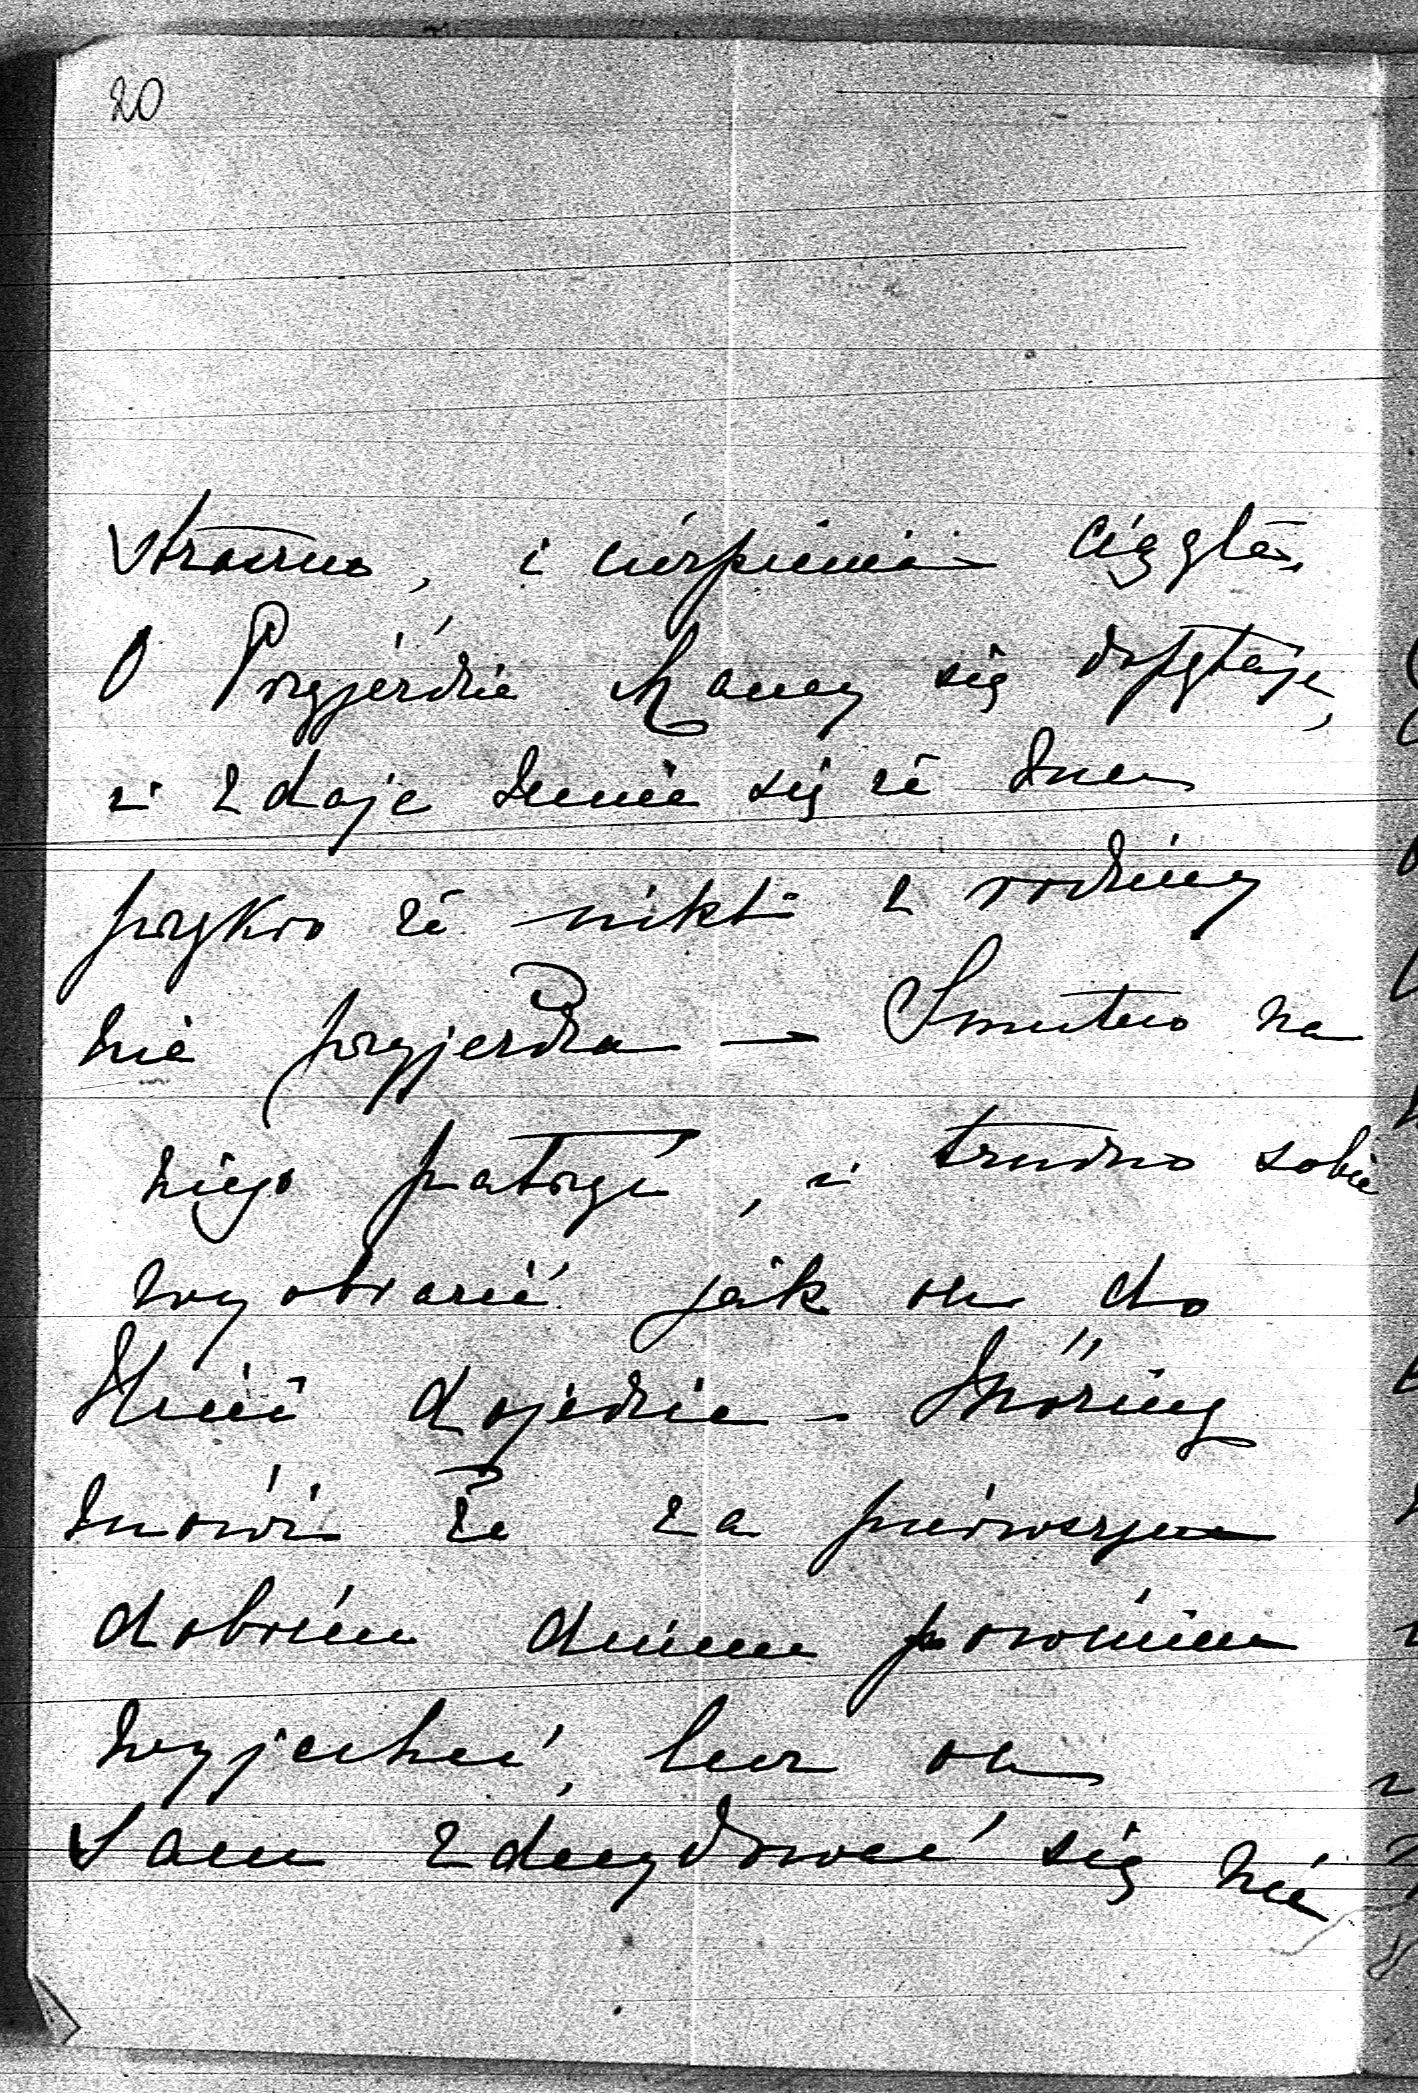 20
straszne, i cierpienia ciągłe,
O Przyjeździe Mamy się dopytaje,
i zdaje mnie się że mu
przykro że nikt z rodziny
nie przyjeżdża — Smutno na
niego patrzyć, i trudno sobie
wyobrazić jak on do
dojedzie —
mówi że za pierwszym
dobrém dniem powinien
wyjechać, lecz on
sam zdecydować się nie